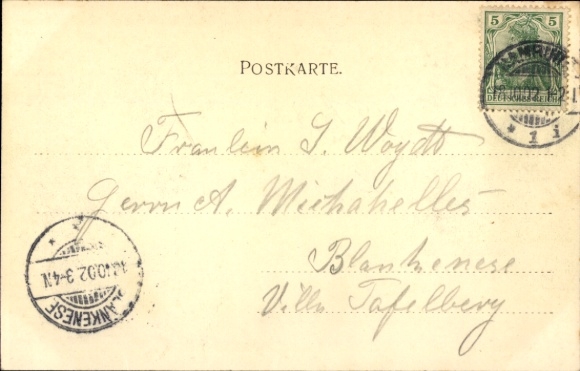 5 5
DEUTSCHES REICH
HAMBURG
10.02.1-2
* 1 i
POSTKARTE.
Fraulein J. Woydt
Herrn A. Michahelles
Blankenese
Villa Tafelberg
10.02.3-4N
BLANKENESE